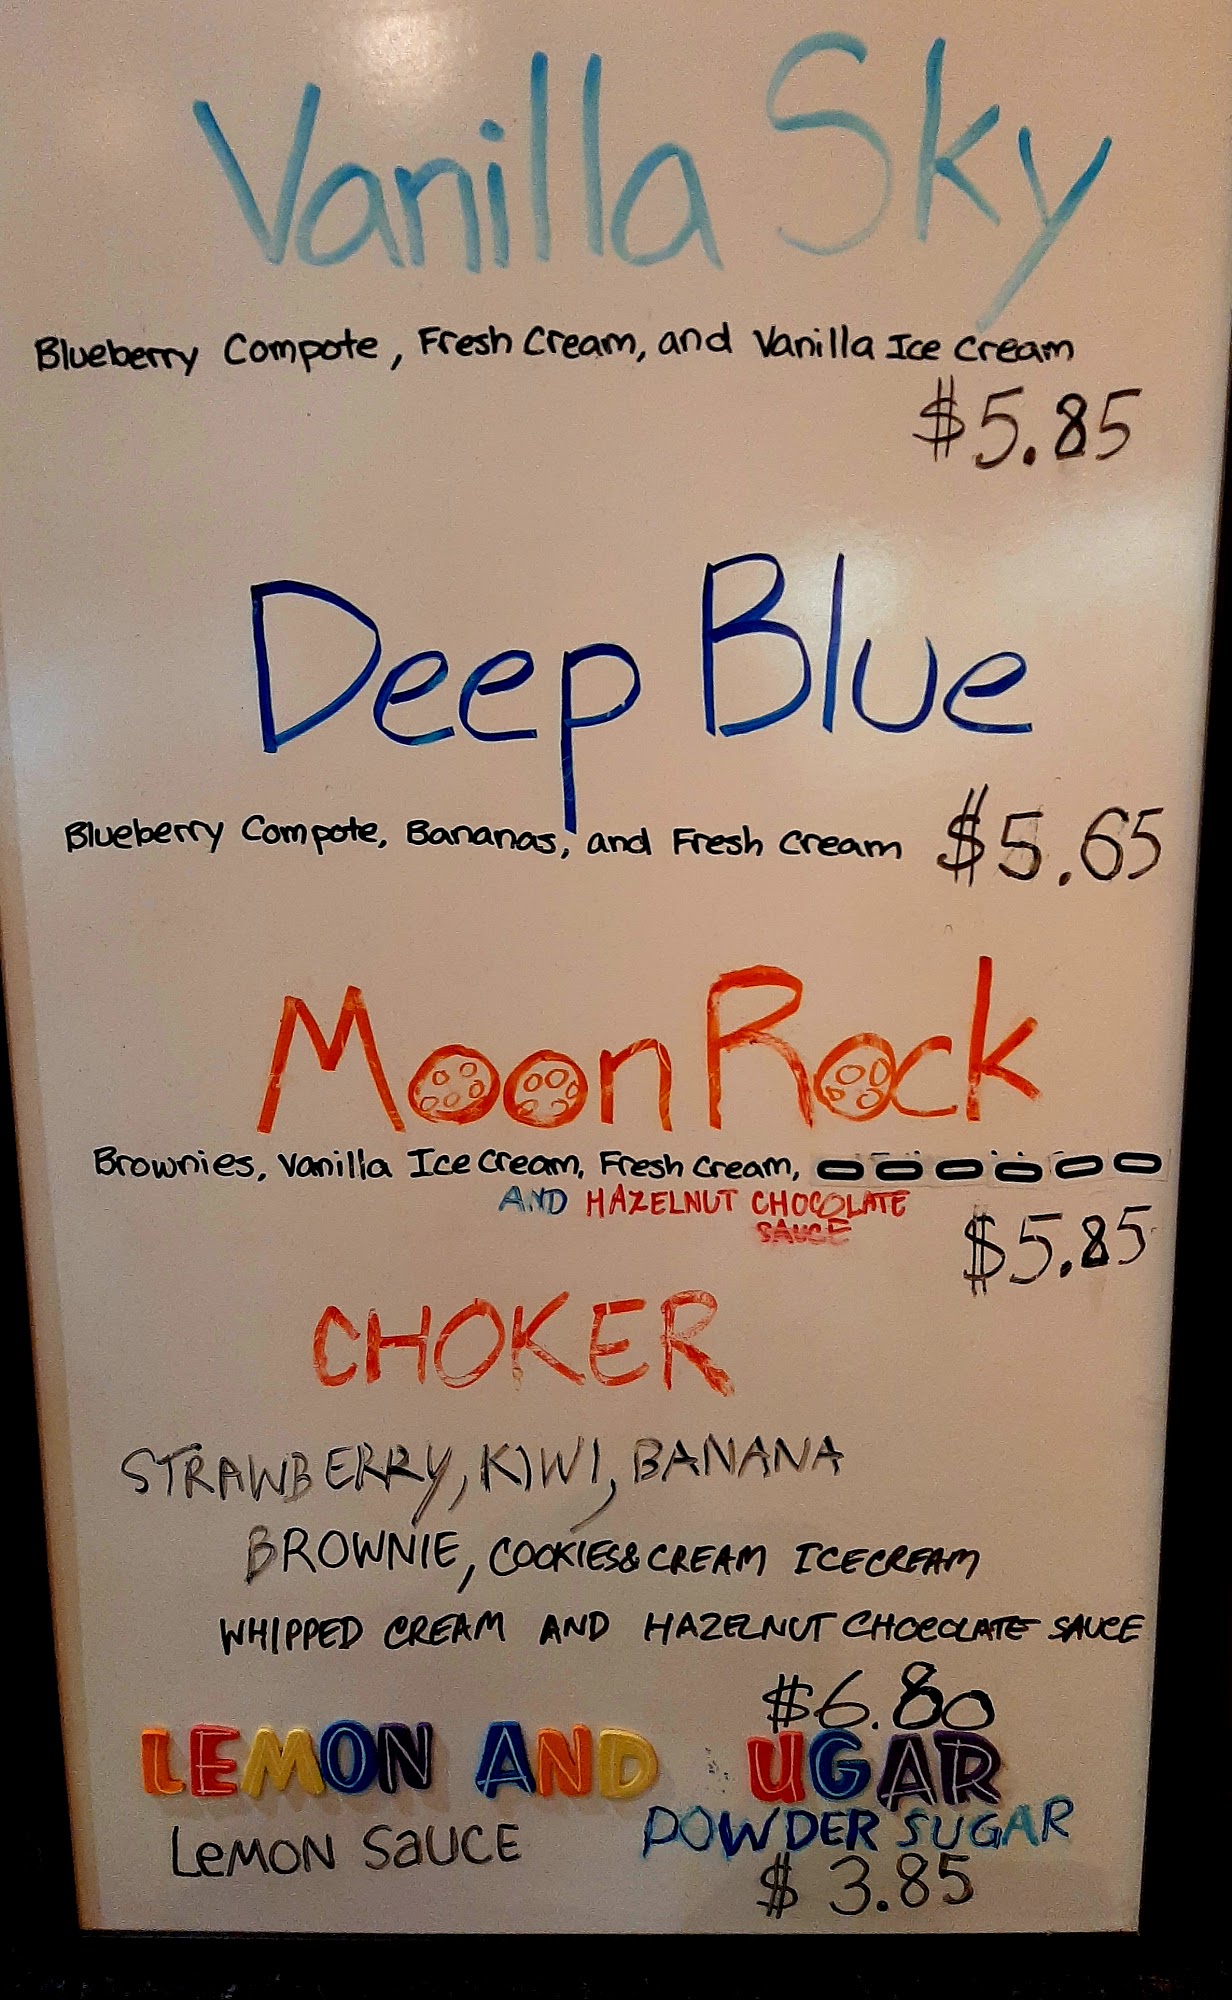 Vanilla Sky
Blueberry Compote, Fresh Cream, and Vanilla Ice Cream
$5.85
Deep Blue
Blueberry Compote, Bananas, and Fresh Cream $5.65
Moon Rock
Brownies, Vanilla Ice Cream, Fresh Cream,
AND HAZELNUT CHOCOLATE
SAUCE
$5.85
CHOKER
STRAWBERRY, KIWI, BANANA
BROWNIE, COOKIES&CREAM ICECREAM
WHIPPED CREAM AND HAZELNUT CHOCOLATE SAUCE
$6.80
LEMON AND UGAR
LEMON SAUCE POWDER SUGAR
$3.85